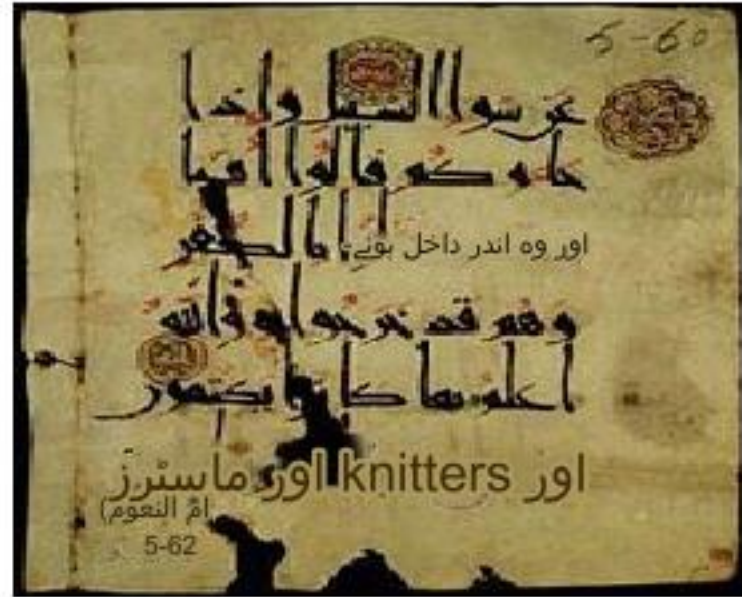 5-60
عن سوا السبيل واذا
جاوكم قالوا امنا
اور وه اندر داخل ہوئے بالكفر
وهم قد خرجوا به والله
اعلم بما كانوا يكتمون
اور knitters اور ماسٹرز
امّ النعوم)
5-62